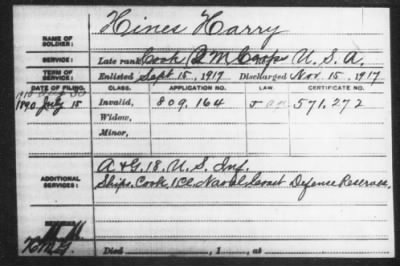 Hines Harry
NAME OF SOLDIER:
SERVICE: Late rank Cook Q M Corps U. S. A.
TERM OF SERVICE: Enlisted Sept 15, 1917 Discharged Nov. 15, 1917
DATE OF FILING. CLASS. APPLICATION NO. LAW. CERTIFICATE NO.
1890 July 15 Invalid, 809,164 571,272
Widow,
Minor,
ADDITIONAL SERVICES: A & G, 18, U. S. Inf.
Ships, Cook, 1 Cl. Naval Coast Defense Reserves.
Died , 1 , at